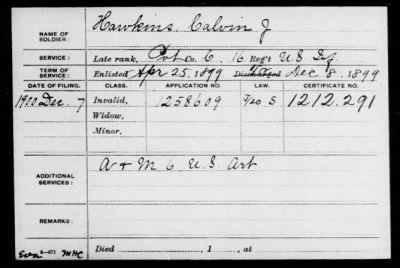 NAME OF SOLDIER: Hawkins, Calvin J
SERVICE: Late rank, Pvt Co. E, 16 Reg't U.S. Inf.
TERM OF SERVICE: Enlisted Apr 25, 1899 Discharged Dec 8, 1899
DATE OF FILING. CLASS. APPLICATION NO. LAW. CERTIFICATE NO.
1900 Dec. 7 Invalid, 258609 S 1212.291
Widow,
Minor,
ADDITIONAL SERVICES: A & M 6 U.S Art
REMARKS:
Died , 1 , at